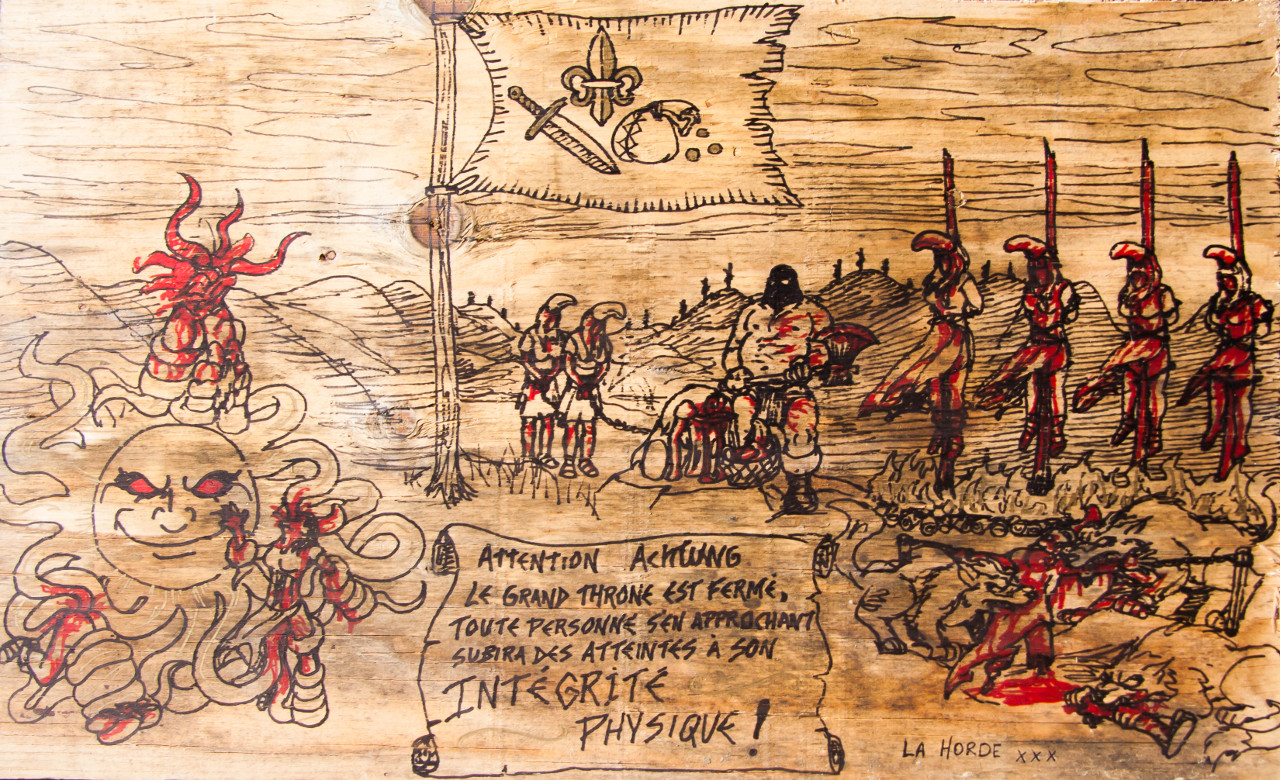 ATTENTION ACHTUNG
LE GRAND THRONE EST FERMÉ,
TOUTE PERSONNE S'EN APPROCHANT
SUBIRA DES ATTEINTES À SON
INTÉGRITÉ
PHYSIQUE !
LA HORDE xxx